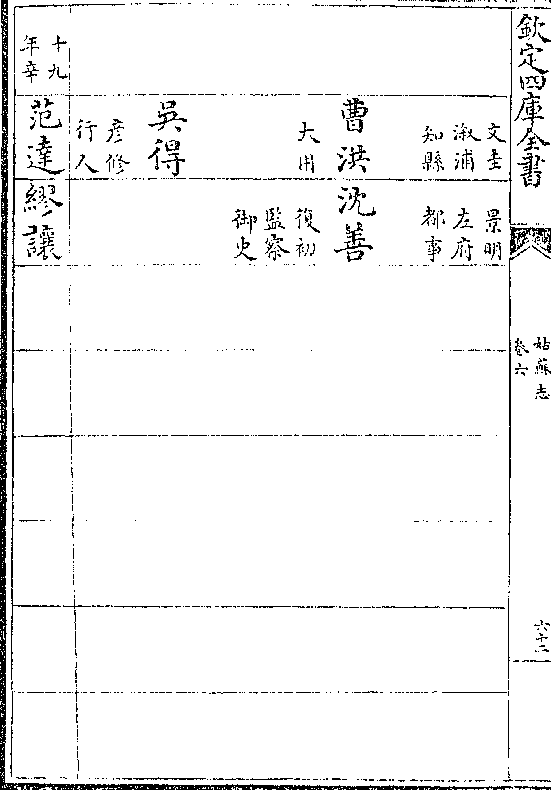 欽定四庫全書
姑蘇志
卷六
六十二
文圭
溆浦
知縣
景明
左府
都事
曹洪
大用
沈善
復初
監察
御史
吳得
彦修
行人
十九
年辛
范達
繆讓